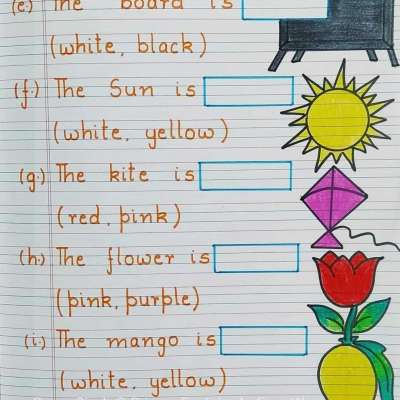 (e.) The board is
(white, black)
(f.) The Sun is
(white, yellow)
(g.) The kite is
(red, pink)
(h.) The flower is
(pink, purple)
(i.) The mango is
(white, yellow)